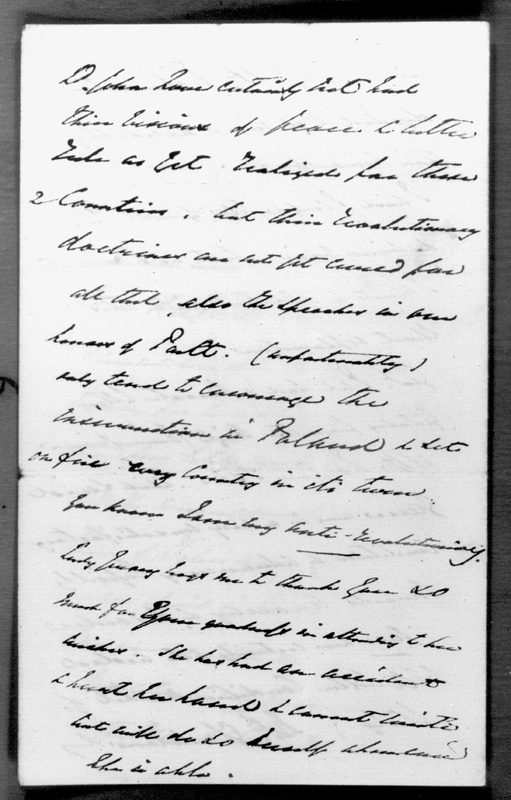 Ld. John Russell certainly not had
their visions of peace & better
rule as yet realized for those
2 Countries, but their Revolutionary
doctrines are not yet cured for
all that, also the speeches in our
houses of Parlt. (unfortunately)
only tend to encourage the
insurrection in Poland & sets
on fire every Country in its turn.
You know I am very anti-revolutionary.
Lady begs me to thank you so
much for your goodness in attending to her
wishes. She has had an accident
& hurt her hand & cannot write
but will do so herself when
She is able.